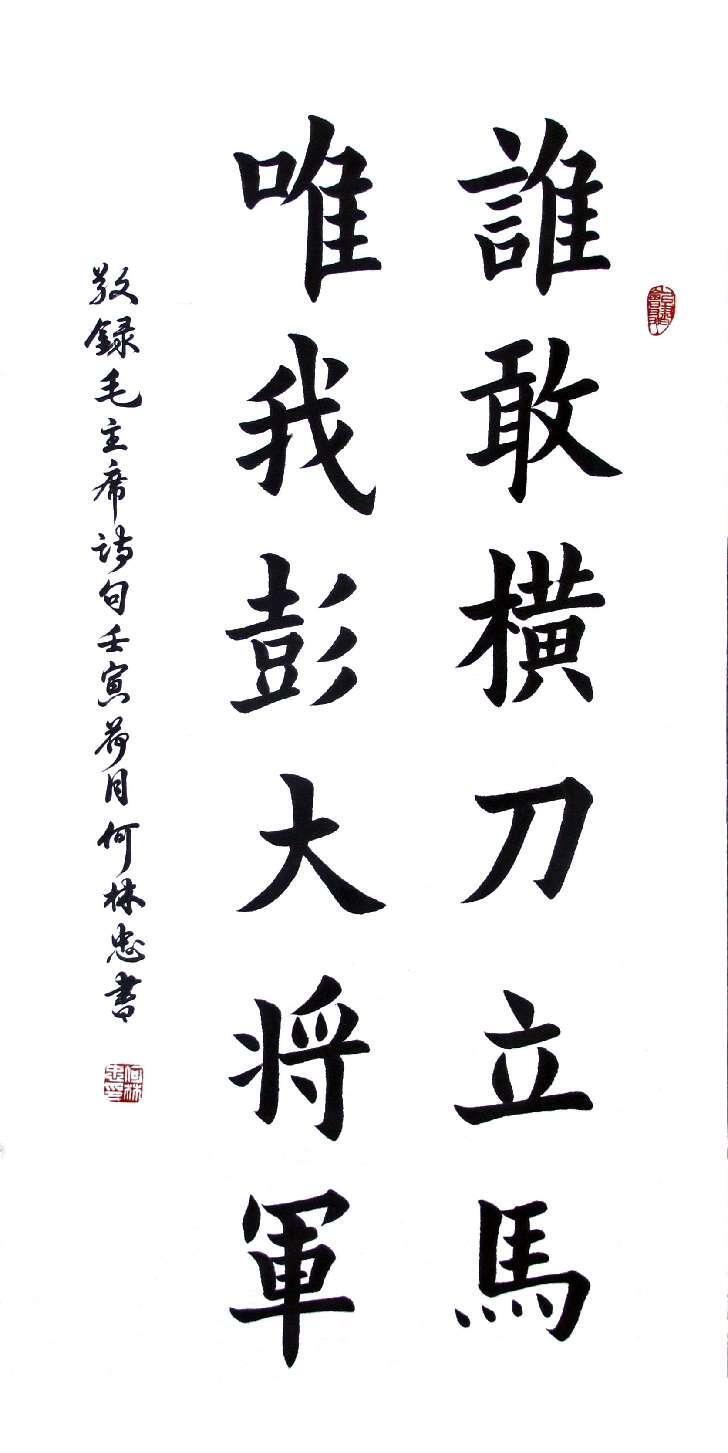 誰敢横刀立馬
唯我彭大将軍
敬録毛主席詩句壬寅荷月何林忠書